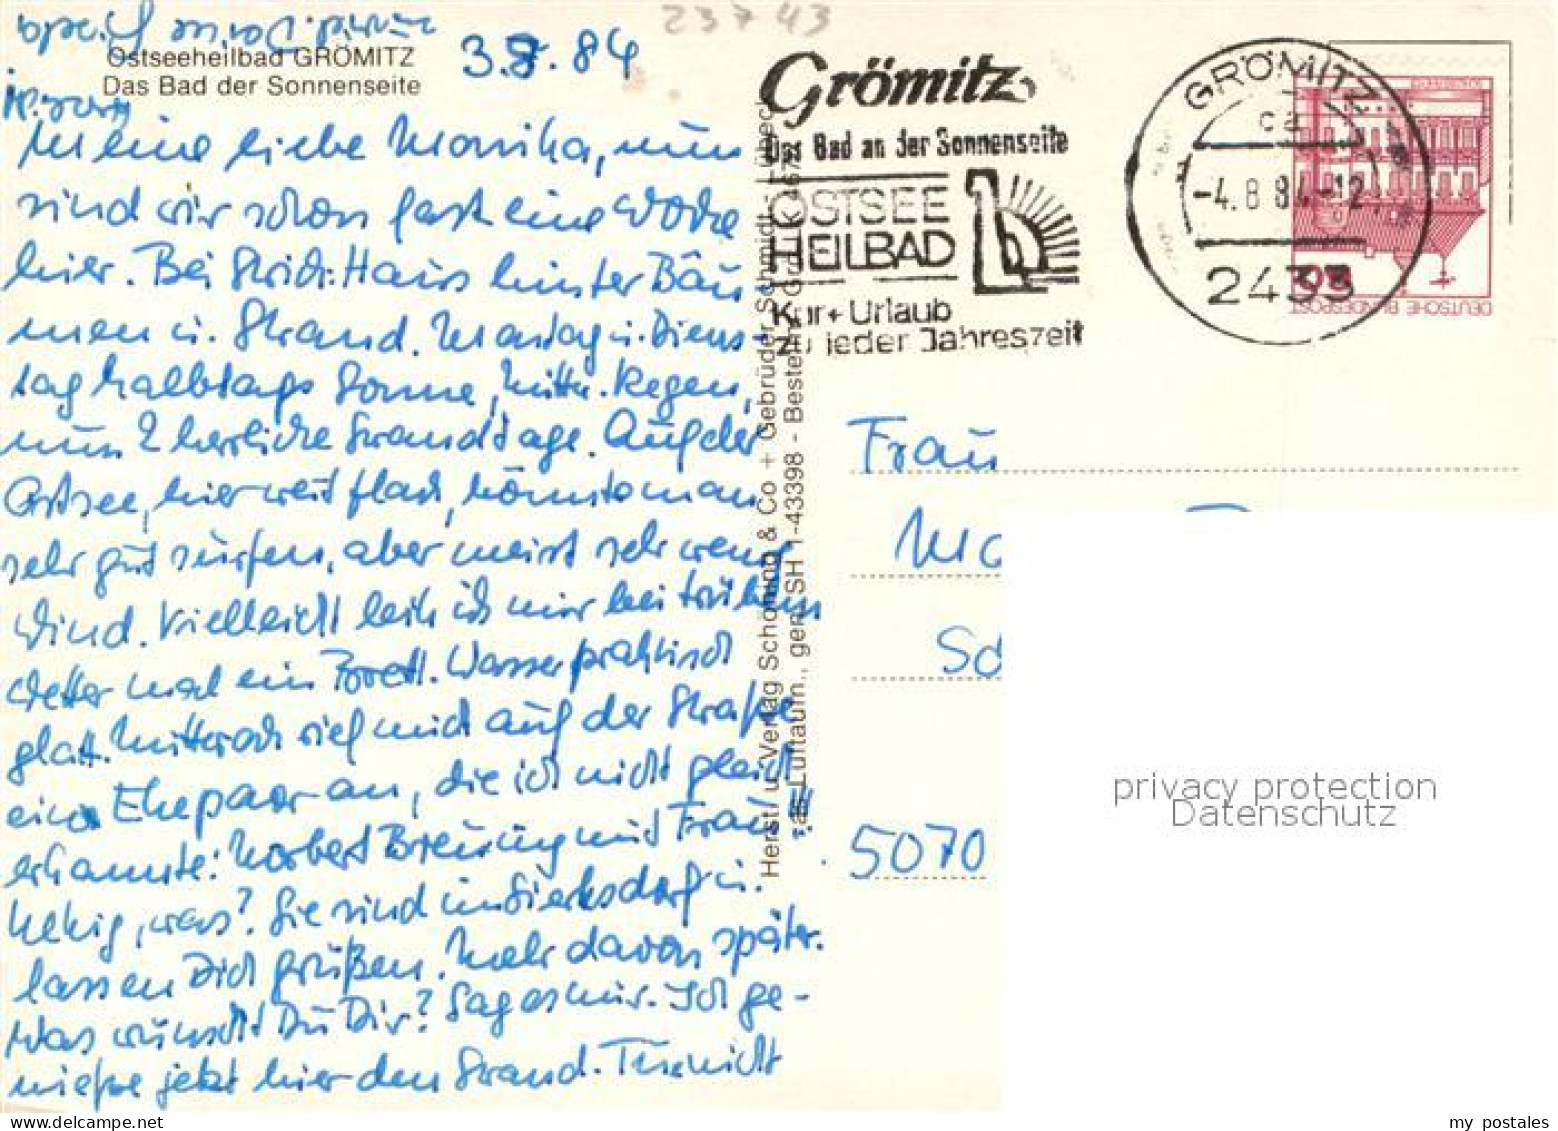 23743
3.8.84
Ostseeheilbad GRÖMITZ
Das Bad der Sonnenseite
Meine liebe Monika, nun
sind wir schon fast eine Woche
hier. Bei Haus hinter Bäu
men u. Strand. Montag u. Diens-
tag halbtags Sonne, Mittw. Regen,
nun 2 herrliche Strandtage. Auf der
Ostsee, hier weit flach, könnte man
sehr gut surfen, aber meist sehr wenig
Wind. Vielleicht leih ich mir bei trübem
Wetter mal ein Brett. Wasser praktisch
glatt. Mittwoch rief mich auf der Straße
ein Ehepaar an, die ich nicht gleich
erkannte: Norbert Breuing mit Frau!!!
, was? Sie sind in Sierksdorf u.
lassen Dich grüßen. Mehr davon später.
Was wünscht Du Dir? Sag es mir. Ich ge-
nieße jetzt hier den Strand. Tu nicht
Herst. u. Verlag Schöning & Co + Gebrüder Schmidt - Lübeck
Luftaufn., gen. SH 1-43398 - Bestell
Grömitz
Das Bad an der Sonnenseite
OSTSEE
HEILBAD
Kur + Urlaub
zu jeder Jahreszeit
GRÖMITZ
ca
-4.8.84-12
2433
DEUTSCHE BUNDESPOST
Frau
Mo
Sc
5070
privacy protection
Datenschutz
my postales